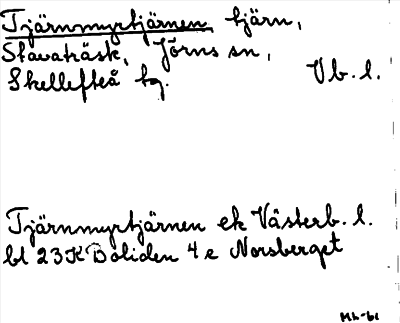 Tjärnmyrtjärnen, tjärn,
Stavaträsk, Jörns sn,
Skellefteå tg. Vb. l.
Tjärnmyrtjärnen ek Västerb. l.
bl 23K Boliden 4e Norsberget